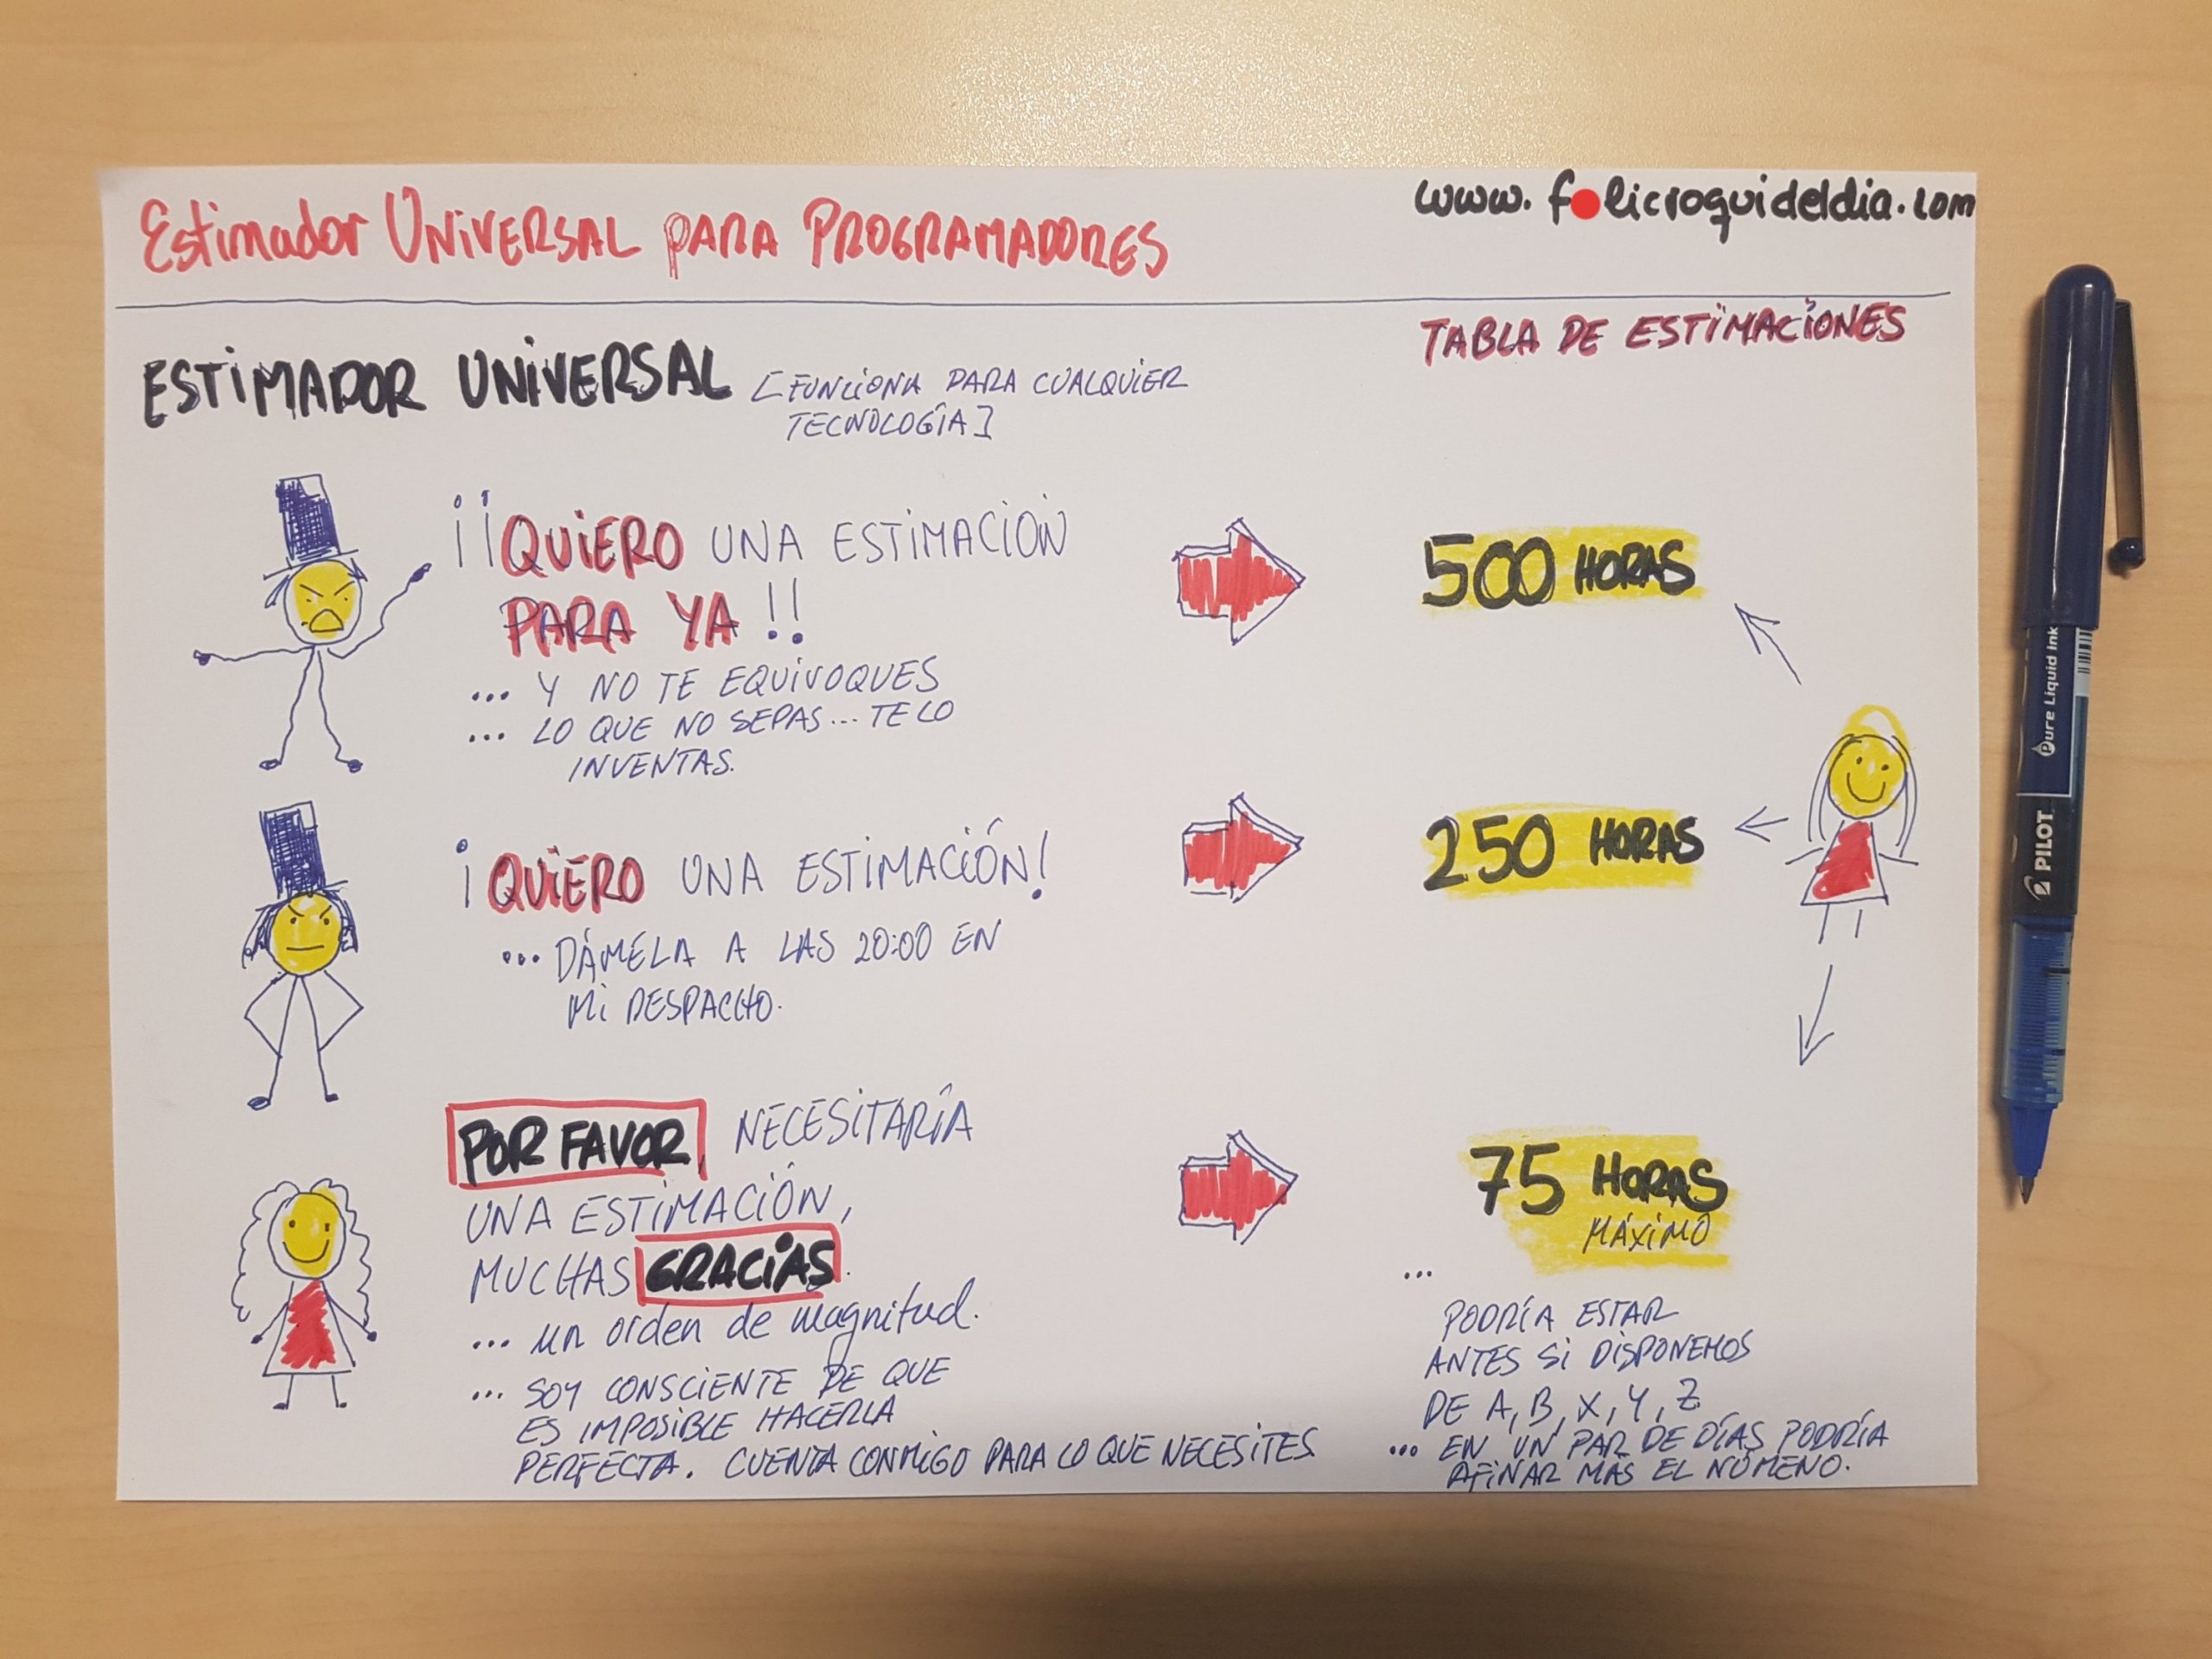 Estimador UNIVERSAL PARA PROGRAMADORES
www.folicroquideldia.com
ESTIMADOR UNIVERSAL [FUNCIONA PARA CUALQUIER
TECNOLOGÍA]
TABLA DE ESTIMACIONES
¡¡QUIERO UNA ESTIMACIÓN
PARA YA!!
... Y NO TE EQUIVOQUES
... LO QUE NO SEPAS... TE LO
INVENTAS.
500 HORAS
¡QUIERO UNA ESTIMACIÓN!
... DÁMELA A LAS 20:00 EN
MI DESPACHO.
250 HORAS
POR FAVOR, NECESITARÍA
UNA ESTIMACIÓN,
MUCHAS GRACIAS.
... un orden de magnitud.
... SOY CONSCIENTE DE QUE
ES IMPOSIBLE HACERLA
PERFECTA. CUENTA CONMIGO PARA LO QUE NECESITES
75 HORAS
MÁXIMO
...
PODRÍA ESTAR
ANTES SI DISPONEMOS
DE A, B, X, Y, Z
... EN UN PAR DE DÍAS PODRÍA
AFINAR MÁS EL NÚMERO.
Pure Liquid Ink
PILOT